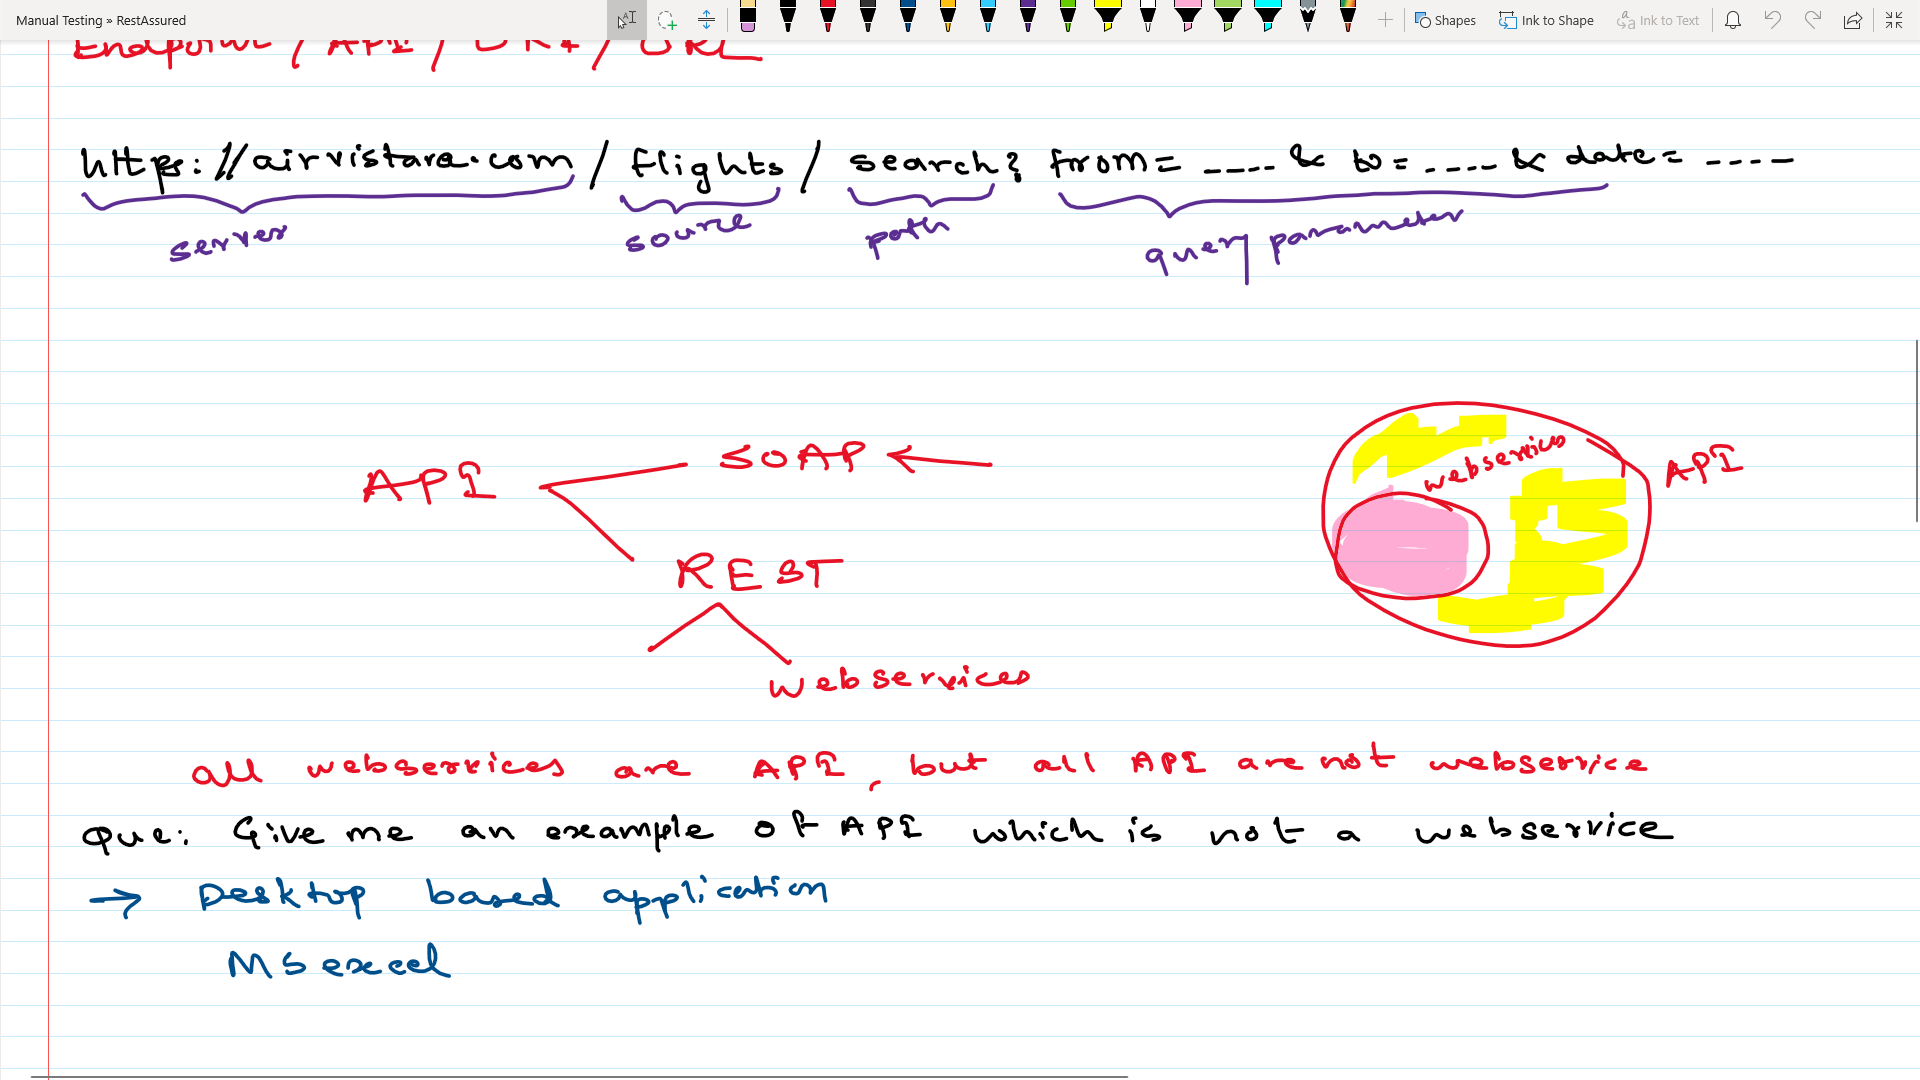 Manual Testing » RestAssured
Shapes
Ink to Shape
Ink to Text
Endpoint / API / URI / URL
https://airvistara.com / flights / search? from= ---- & to= ---- & date= ----
server source path query parameter
API
SOAP
REST
webservices
webservices
API
all webservices are API, but all API are not webservice
Que: Give me an example of API which is not a webservice
→ Desktop based application
MS excel